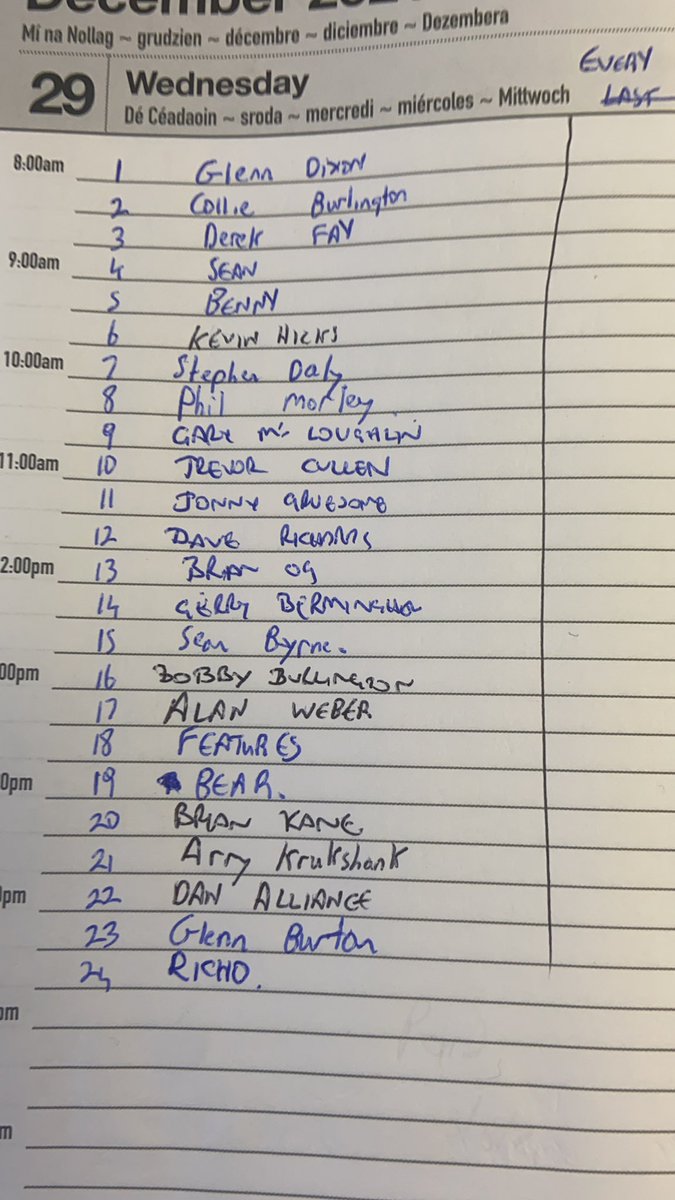 December 202
Mí na Nollag ~ grudzien ~ décembre ~ diciembre ~ Dezembera
29 Wednesday
Dé Céadaoin ~ sroda ~ mercredi ~ miércoles ~ Mittwoch
EVERY
LAST
8:00am 1 Glenn Dixon
2 Collie Burlington
3 Derek FAY
9:00am 4 SEAN
5 BENNY
6 KEVIN HICKS
10:00am 7 Stephen Daly
8 Phil Morley
9 GARY Mc LOUGHLIN
11:00am 10 TREVOR CULLEN
11 JONNY GRUESOME
12 DAVE RICHARDS
2:00pm 13 BRIAN OG
14 GERRY BERMINGHAM
15 Sean Byrne.
00pm 16 BOBBY BULLINGTON
17 ALAN WEBER
18 FEATURES
0pm 19 BEAR.
20 BRIAN KANE
21 Arry Krukshank
pm 22 DAN ALLIANCE
23 Glenn Burton
24 RICHO.
pm
m